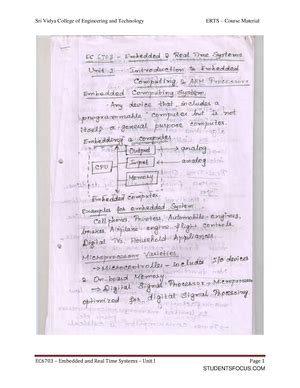 Sri Vidya College of Engineering and Technology ERTS – Course Material
EC 6703 - Embedded & Real Time Systems
Unit I - Introduction to Embedded
Computing & ARM Processors
Embedded Computing System
- Any device that includes a
programmable computer but is not
itself a general purpose computer.
Embedding a computer
Output → analog
CPU Input analog
Memory
Embedded computer
Examples for embedded System
Cell phones, Printers, Automobile engines,
brakes, Airplane engine, flight controls,
Digital TVs, Household Appliances.
Microprocessor Varieties
→ Microcontroller - includes I/O devices
& On-board Memory
→ Digital Signal Processor - Microprocessor
optimized for digital Signal Processing
EC6703 – Embedded and Real Time Systems – Unit I Page 1
STUDENTSFOCUS.COM